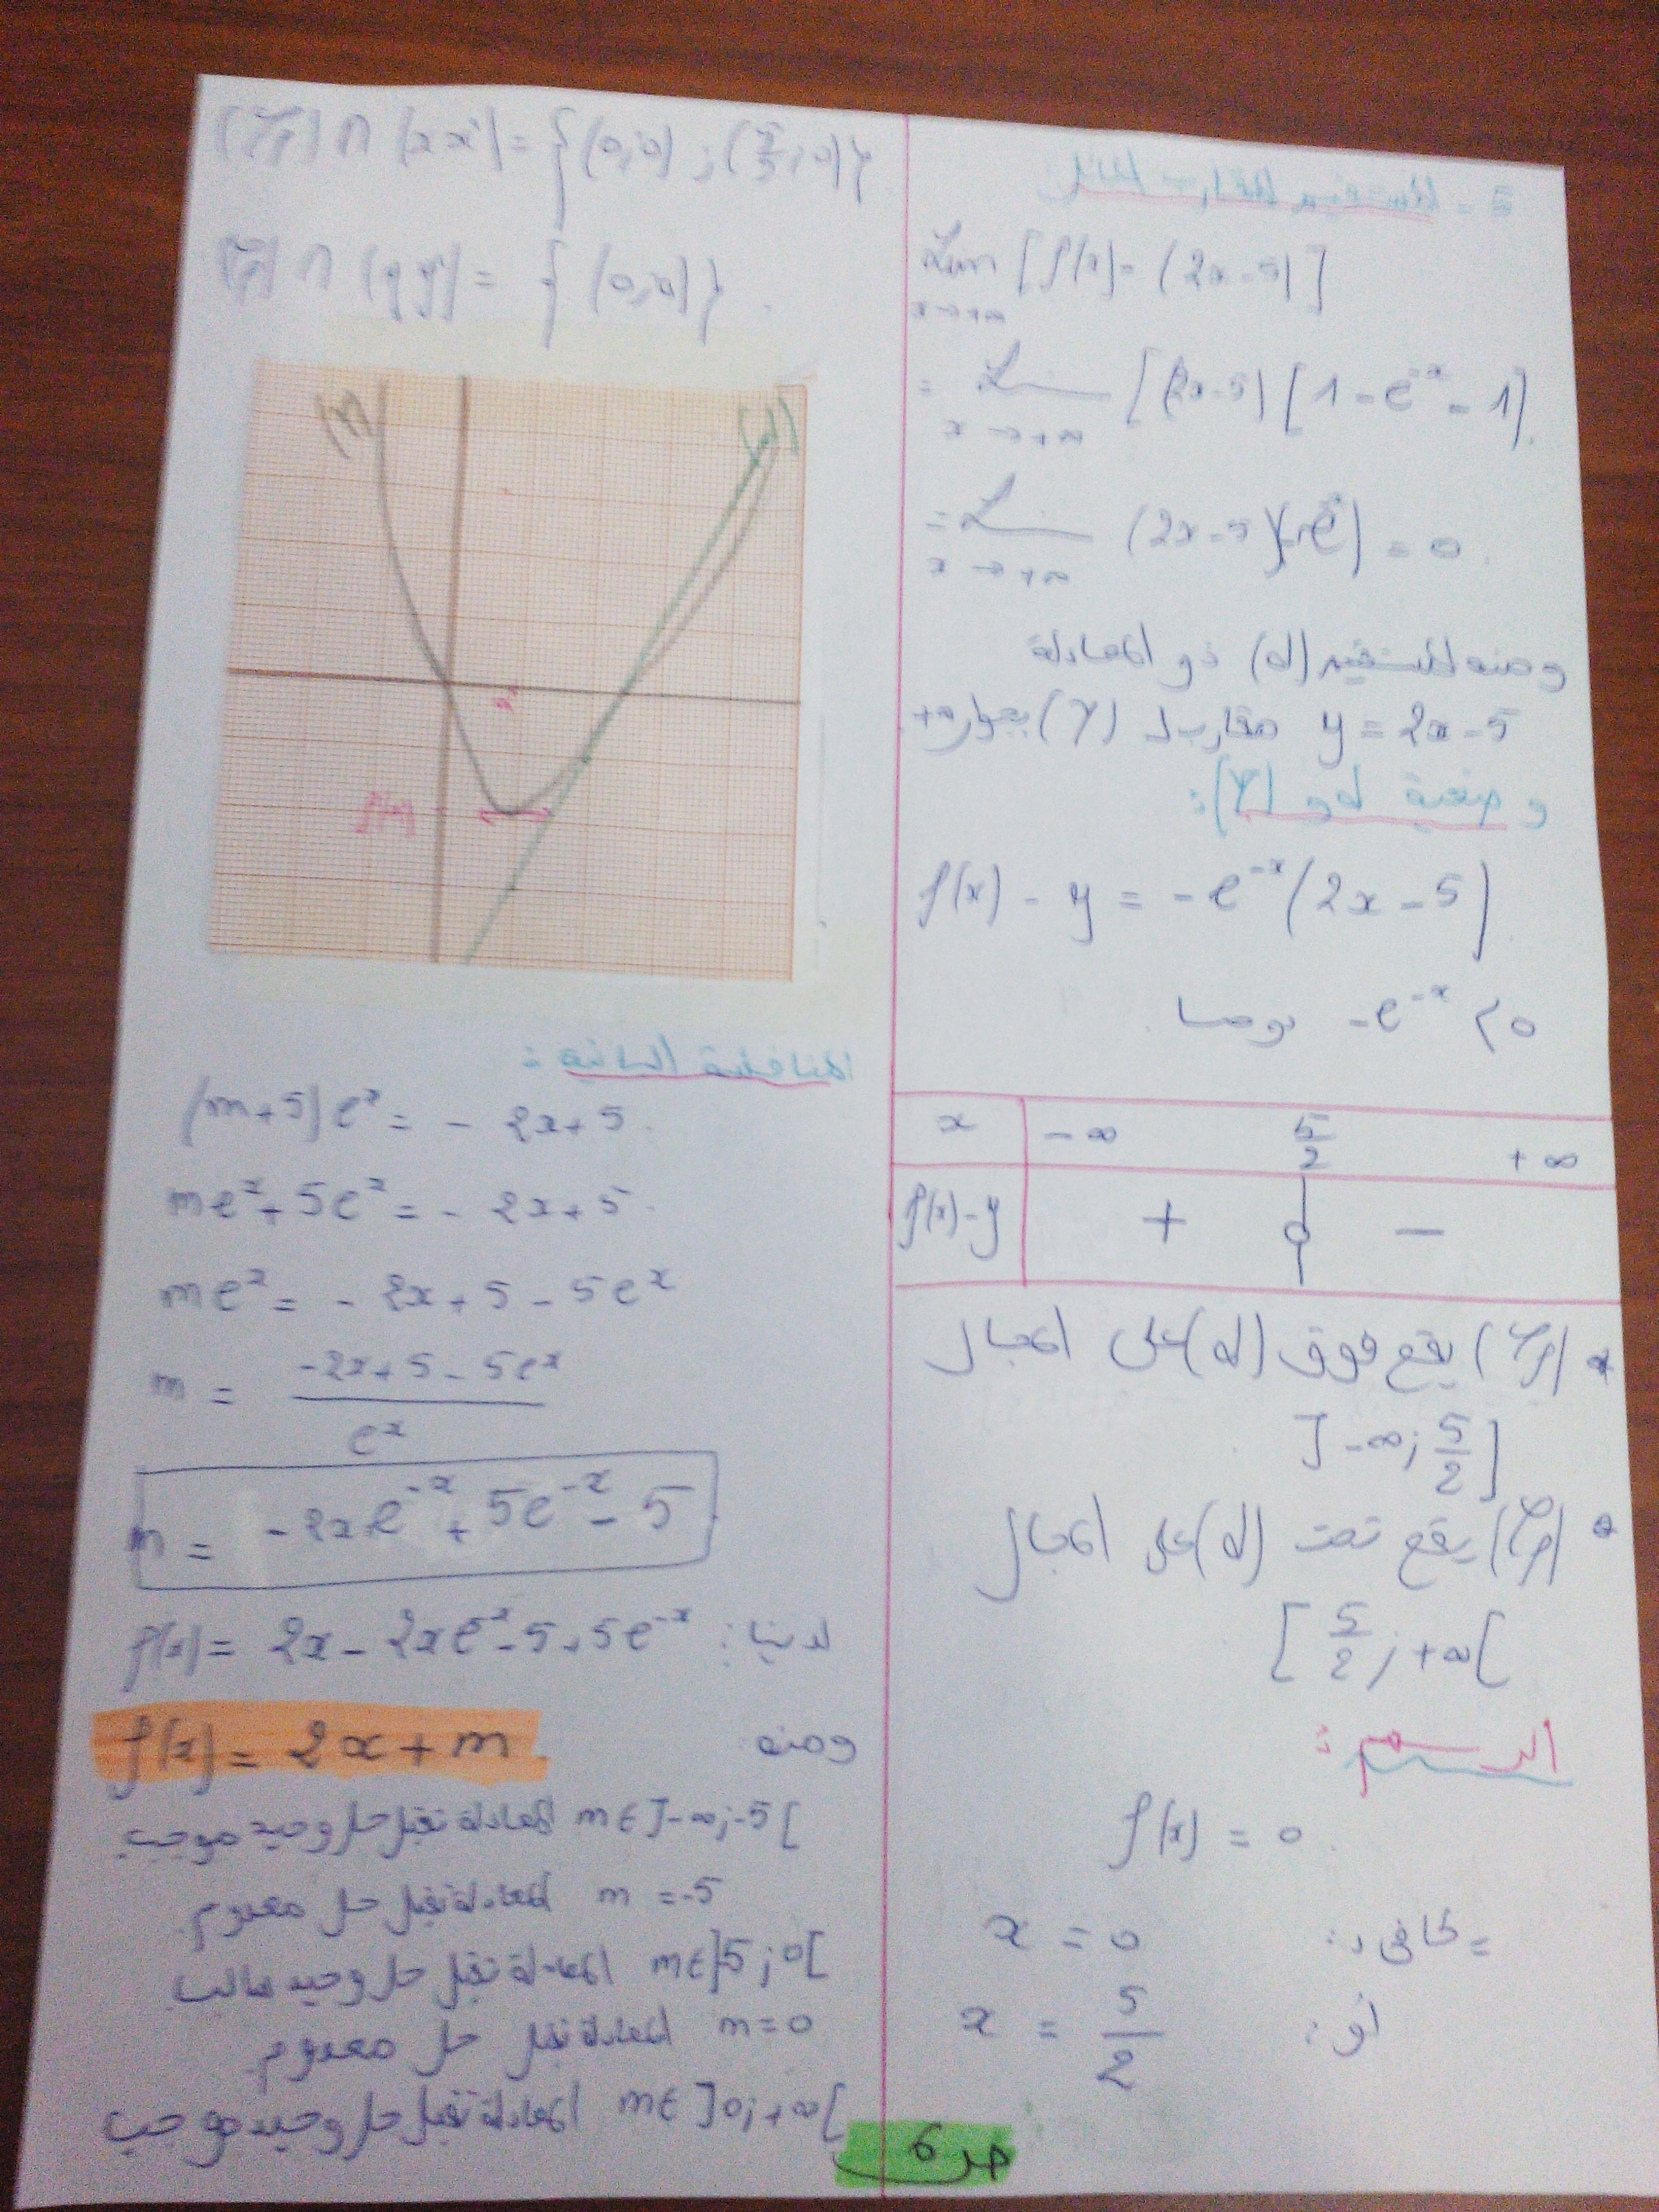 5 - المستقيم المقارب المائل:
Lim [f(x) - (2x-5)]
x→+∞
= L [(2x-5)[1-e⁻ˣ-1]
x→+∞
= L (2x-5)(-e⁻ˣ) = 0
x→+∞
ومنه المستقيم (d) ذو المعادلة
y = 2x-5 مقارب لـ (γ) بجوار +∞
وضعية d و (γ):
f(x) - y = -e⁻ˣ(2x-5)
بوصا -e⁻ˣ < 0
x -∞ 5/2 +∞
f(x)-y + 0 -
* (γf) يقع فوق (d) على المجال
]-∞; 5/2]
* (γf) يقع تحت (d) على المجال
[5/2; +∞[
الرسم:
f(x) = 0
يكافىء: x = 0
أو: x = 5/2
(γf) ∩ (xx') = {(0,0) ; (5/2, 0)}
(γf) ∩ (yy') = {(0,0)}
(γ)
(d)
المناقشة البيانية:
(m+5)eˣ = -2x+5
meˣ+5eˣ = -2x+5
meˣ = -2x+5-5eˣ
m = (-2x+5-5eˣ)/eˣ
m = -2xe⁻ˣ+5e⁻ˣ-5
لدينا: f(x) = 2x-2xe⁻ˣ-5+5e⁻ˣ
ومنه f(x) = 2x+m
m∈]-∞;-5[ المعادلة تقبل حل وحيد موجب
m = -5 المعادلة تقبل حل معدوم
m∈]-5;0[ المعادلة تقبل حل وحيد سالب
m = 0 المعادلة تقبل حل معدوم
m∈]0;+∞[ المعادلة تقبل حل وحيد موجب
ص 6